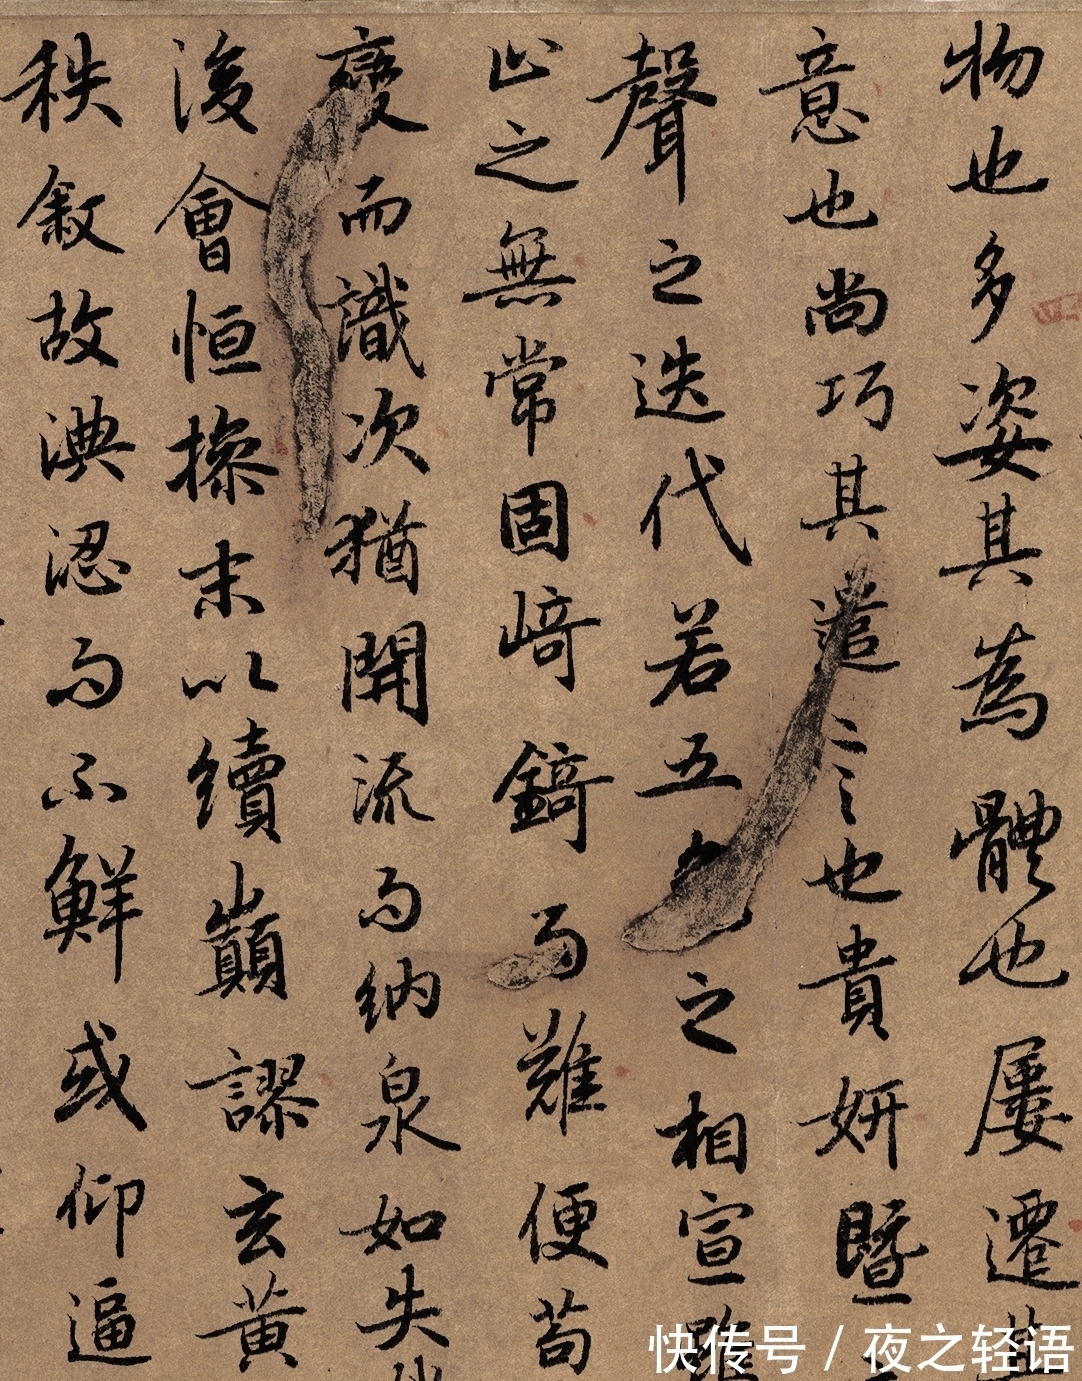 物也多姿其為體也屢遷
意也尚巧其遣言也貴妍暨
聲之迭代若五之相宣雖
止之無常固崎錡而難便苟
變而識次猶開流而納泉如失
後會恒操末以續巔謬玄黃
秩敘故淟涊而不鮮或仰逼
快传号 / 夜之轻语